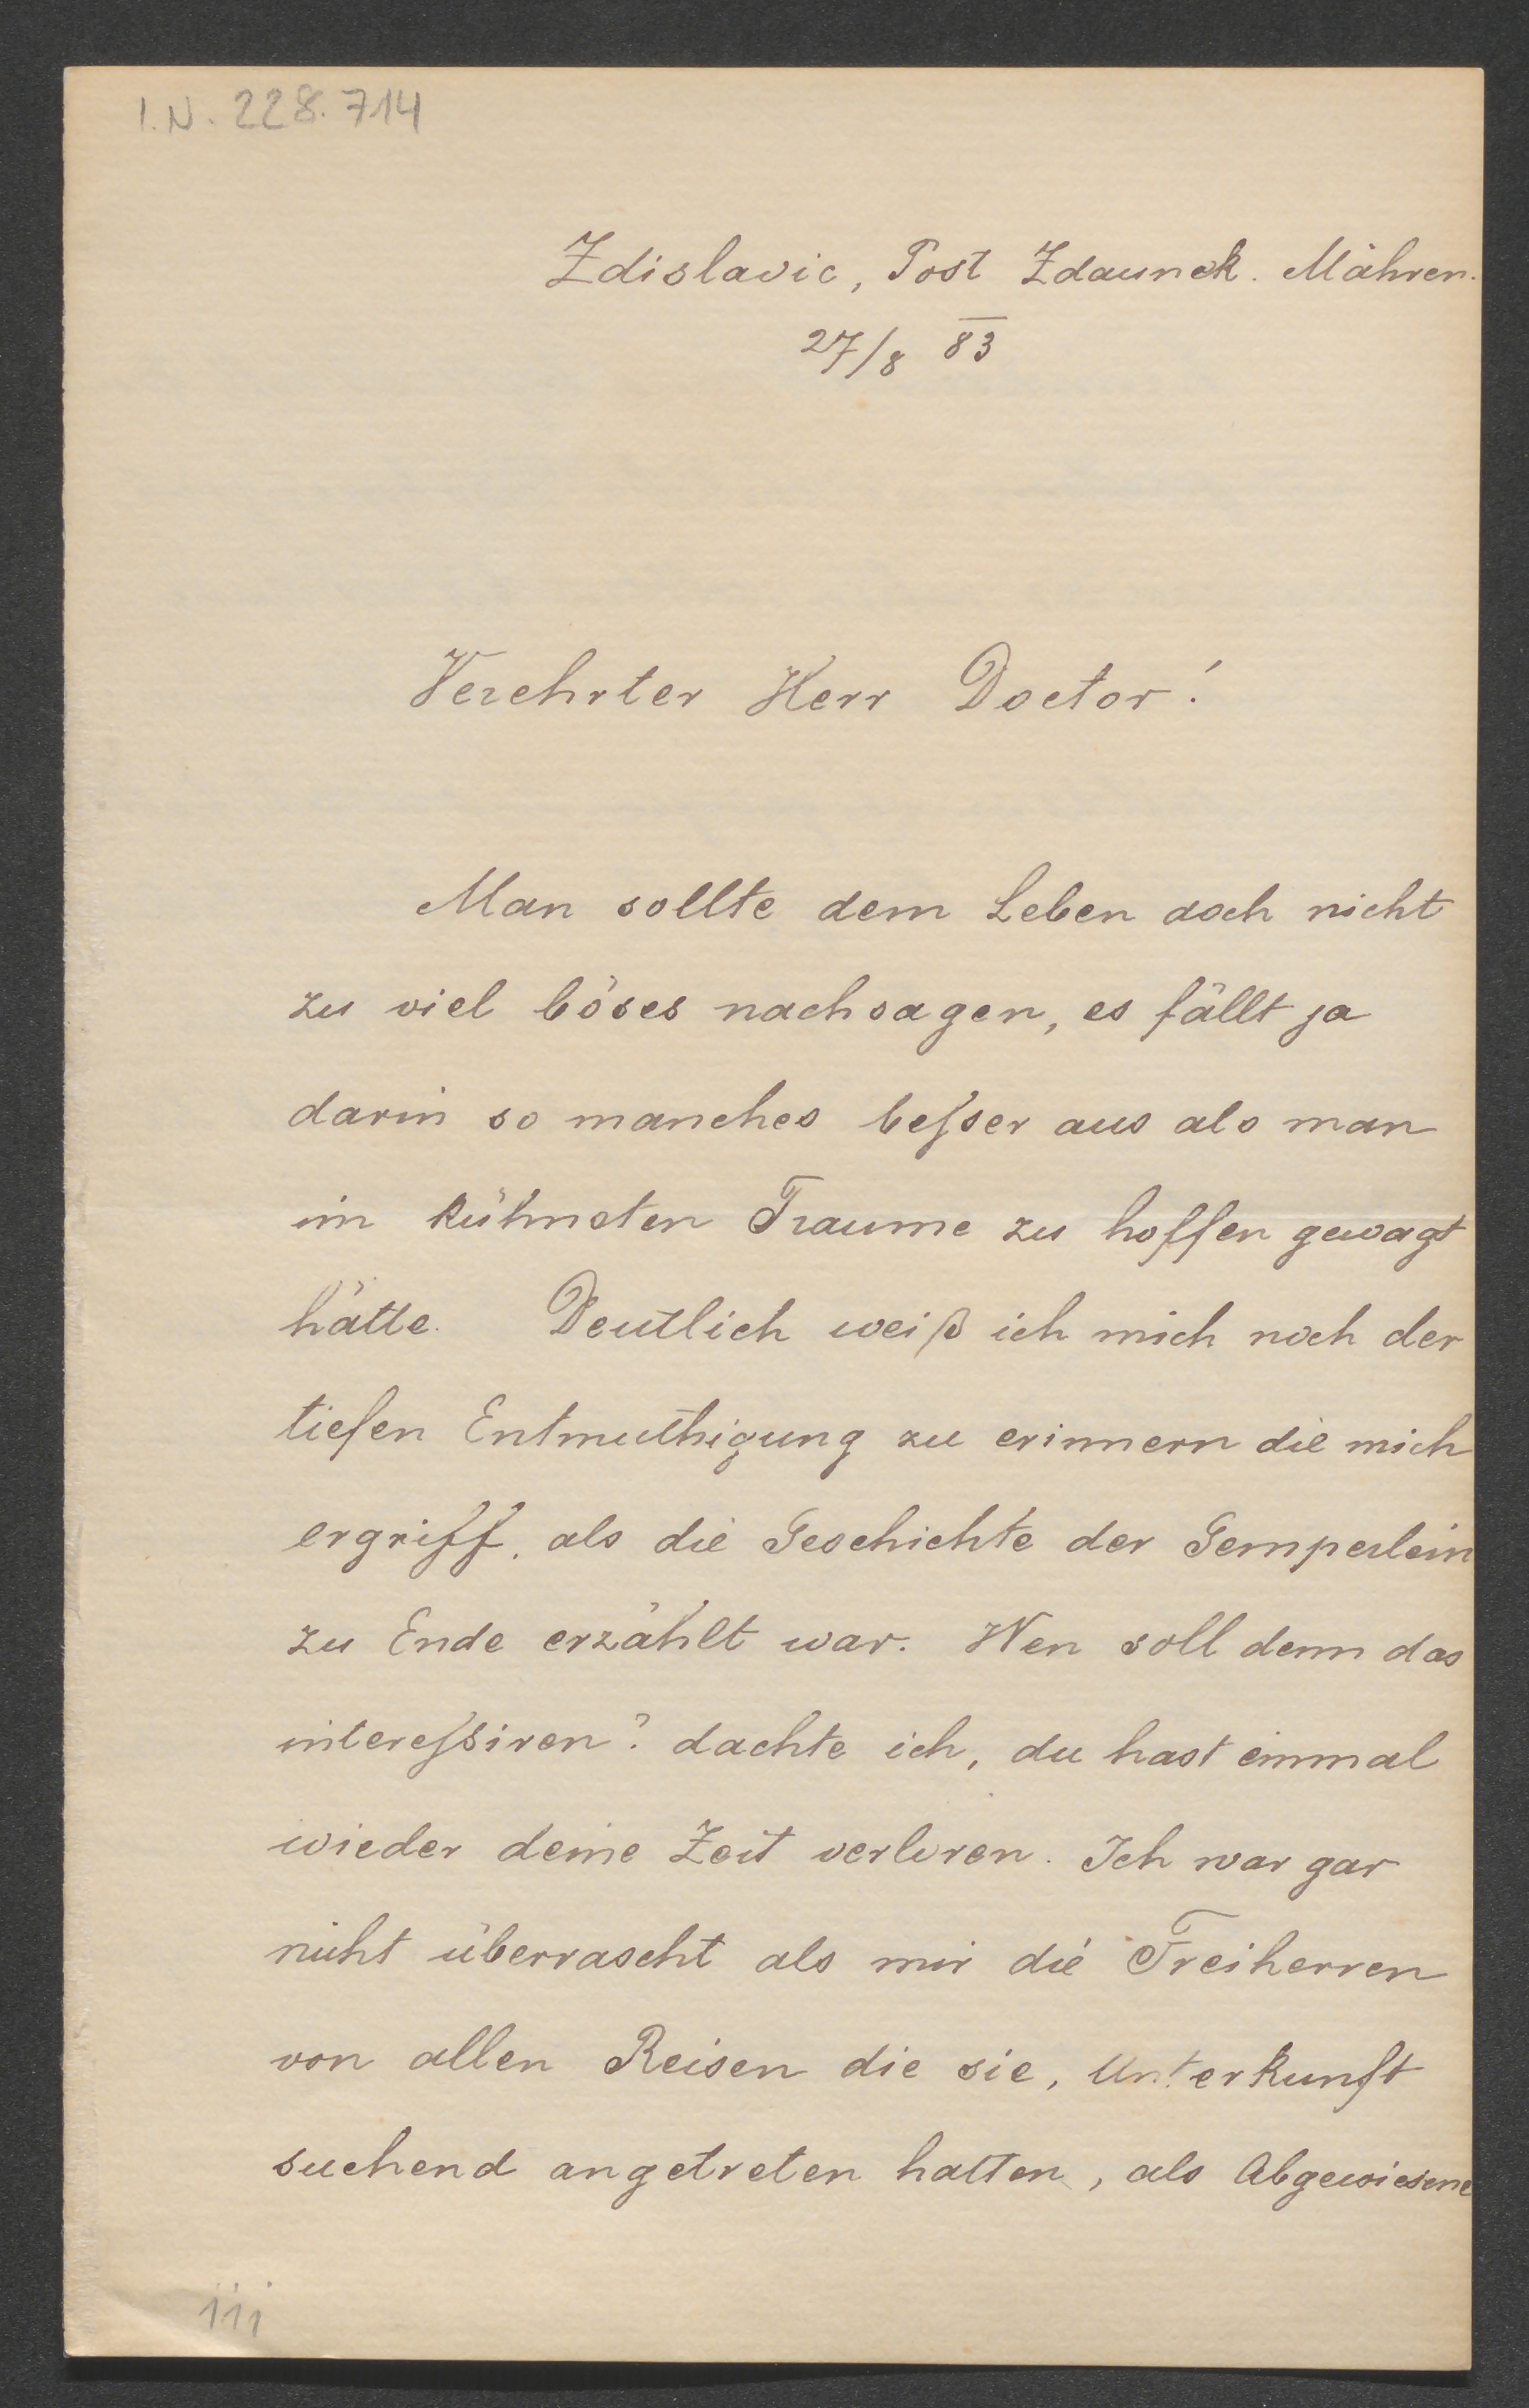 I.N. 228.714
Zdislavic, Post Zdaunek. Mähren.
27/8 83
Verehrter Herr Doctor!
Man sollte dem Leben doch nicht
zu viel böses nachsagen, es fällt ja
darin so manches beſser aus als man
im kühnsten Traume zu hoffen gewagt
hätte. Deutlich weiß ich mich noch der
tiefen Entmuthigung zu erinnern die mich
ergriff, als die Geschichte der Gemperlein
zu Ende erzählt war. Wen soll denn das
intereſsiren? dachte ich, du hast einmal
wieder deine Zeit verloren. Ich war gar
nicht überrascht als mir die Freiherren
von allen Reisen die sie, Unterkunft
suchend angetreten hatten, als Abgewiesene
iii